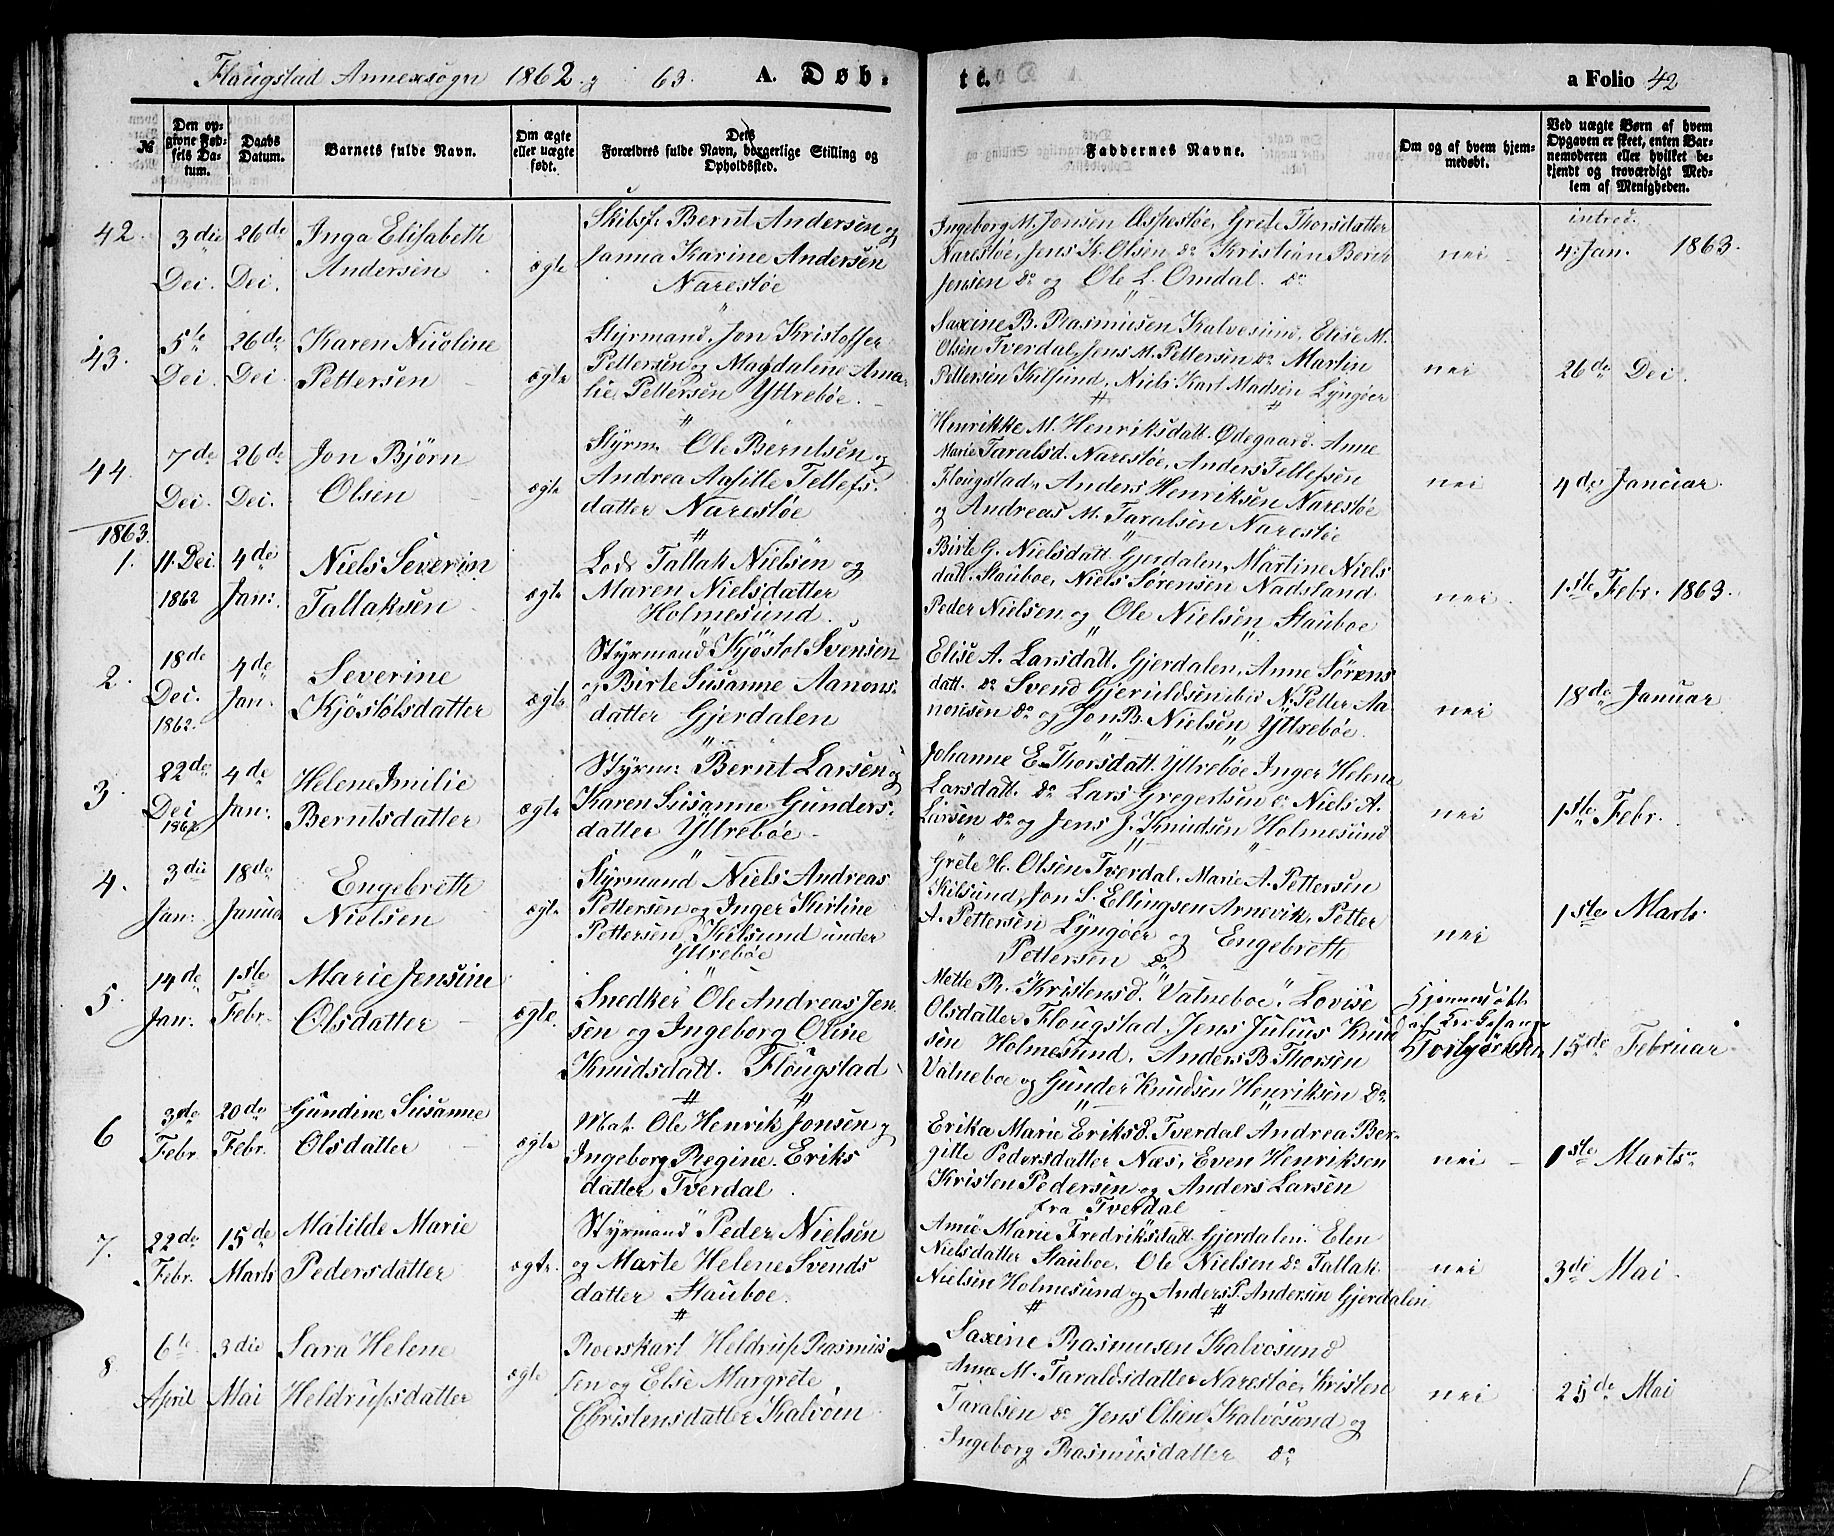 Flaugstad Annexsogn 1862 & 63. A. Døb-
te. a Folio 42
№
Den op-
givne Fød-
sels Da-
tum.
Daabs
Datum.
Barnets fulde Navn.
Om ægte
eller uægte
født.
Dets
Forældres fulde Navn, borgerlige Stilling og
Opholdssted.
Faddernes Navne.
Om og af hvem hjem-
medøbt.
Ved uægte Børn af hvem
Opgaven er skeet, enten Bar-
nemoderen eller hvilket be-
kjendt og troværdigt Med-
lem af Menigheden.
42.
3die
Dei.
26de
Dei.
Inga Elisabeth
Andersen
ægte
Skibsf. Bernt Andersen og
Janna Karine Andersen
Narestøe
Ingeborg M. Jonsen Æspestøe, Grete Thorsdatter
Narestøe, Jens K. Olsen do Kristian Bernt
Jensen do og Ole L. Omdal. do
nei
introd.
4. Jan. 1863.
43.
5te
Dei
26de
Dei.
Karen Nicoline
Pettersen
ægte
Styrmand, Jon Kristoffer
Pettersen og Magdaline Ama-
lie Pettersen Yttrebøe.
Saxine B. Rasmusen Kalvesund, Elise M.
Olsen Tverdal, Jens M. Pettersen do Martin
Pettersen Kilsund, Niels Karl Madsen Lyngøer
nei
26de Dei.
44.
7de
Dei.
26de
Dei.
Jon Bjørn
Olsen
ægte
Styrm. Ole Berntsen og
Andrea Aasille Tellefs-
datter Narestøe
Henrikke M. Henriksdatt. Ødegaard. Anne
Marie Taralsd. Narestøe, Anders Tellefsen
Flougstad, Anders Henriksen Narestøe
og Andreas M. Taralsen Narestøe
nei
4de Januar.
1863.
1.
11. Dei.
1862
4de
Jan:
Niels Severin
Tallaksen
ægte
Lods Tallak Nielsen og
Maren Nielsdatter
Holmesund.
Birte G. Nielsdatt. Gjerdalen, Martine Niels
datt. Stauboe, Niels Sørensen Nadstand
Peder Nielsen og Ole Nielsen Stauboe
nei.
1ste Febr. 1863.
2.
18de
Dei.
1862.
4de
Jan.
Severine
Kjøstolsdatter
ægte
Styrmand Kjøstol Svensen
og Birte Susanne Aanons-
datter Gjerdalen
Elise A. Larsdatt. Gjerdalen, Anne Sørens
datt. do Svend Gjeruldsen ibid. N. Petter Aa-
nonsen do og Jon B. Nielsen Yttrebøe.
nei
18de Januar
3.
22de
Dei
1862
4de
Jan:
Helene Emilie
Berntsdatter
ægte
Styrm: Bernt Larsen og
Karen Susanne Gunders-
datter Yttrebøe
Johanne E. Thorsdatt. Yttrebøe Inger Helena
Larsdatt. do Lars Gregertsen do Niels A.
Larsen do og Jens J. Knudsen Holmesund
nei
1ste Febr.
4.
3die
Jan:
18de
Januar
Engebreth
Nielsen
ægte
Styrmand Niels Andreas
Pettersen og Inger Kirstine
Pettersen Kilsund under
Yttrebøe
Grete H. Olsen Tverdal, Marie A. Pettersen
Kilsund, Jon S. Ellingsen Arnevik, Petter
A. Pettersen Lyngøer og Engebreth
Pettersen do
nei
1ste Marts.
5.
14de
Jan:
1ste
Febr.
Marie Jensine
Olsdatter
ægte.
Snedker Ole Andreas Jen-
sen og Ingeborg Oline
Knudsdatt. Flougstad
Mette R. Kristensd. Vatneboe, Lovise
Olsdatter Flougstad, Jens Julius Knud
sen Holmesund, Anders B. Thorsen
Vatneboe og Gunder Knudsen Henriksen do
Hjemmedøbt
15de Februar
6
3de
Febr.
20de
Febr.
Gundine Susanne
Olsdatter
ægte
Mat. Ole Henrik Jonsen og
Ingeborg Regine Eriks
datter Tverdal
Erika Marie Eriksd. Tverdal Andrea Ber-
gitte Pedersdatter Næs, Even Henriksen
Kristen Pedersen og Anders Larsen
fra Tverdal
nei
1ste Marts.
7.
22de
Febr.
15de
Marts
Matilde Marie
Pedersdatter
ægte.
Styrmand Peder Nielsen
og Marte Helene Svends
datter Stauboe.
Anne Marie Fredriksdatt. Gjerdalen. Elen
Nielsdatter Stauboe, Ole Nielsen do Tallak
Nielsen Holmesund og Anders P. Andersen Gjerdalen
nei
3die Mai.
8.
6te
April
3die
Mai
Sara Helene
Heldrufsdatter
ægte
Roerskarl Heldruf Rasmus
sen og Else Margrete
Christensdatter Kalvøen
Saxine Rasmusen Kalvøsund
Anne M. Taraldsdatter Narestøe, Kristen
Taralsen do Jens Olsen Kalvøsund og
Ingeborg Rasmusdatter do
nei
25de Mai